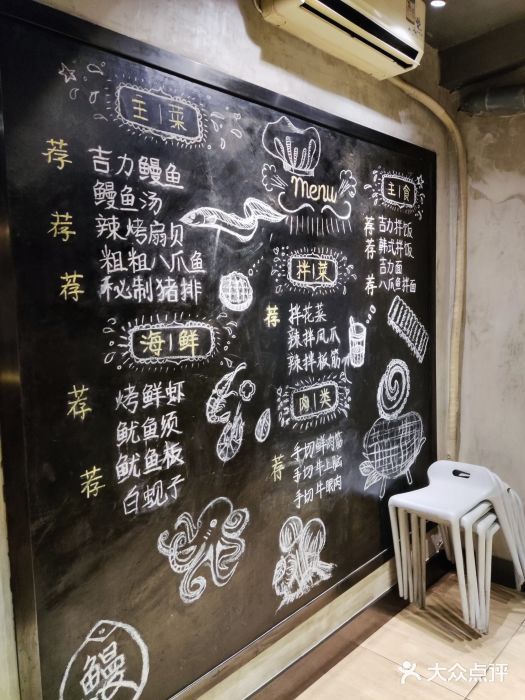 主|菜
荐 吉力鳗鱼
鳗鱼汤
荐 辣烤扇贝
粗粗八爪鱼
荐 秘制猪排
海|鲜
荐 烤鲜虾
鱿鱼须
荐 鱿鱼板
白蚬子
Menu
拌|菜
荐 拌花菜
辣拌凤爪
辣拌板筋
肉|类
手切鲜肉
荐 手切牛上脑
手切牛眼肉
主|食
荐 吉力拌饭
荐 韩式拌饭
吉力面
荐 八爪鱼拌面
鳗
大众点评